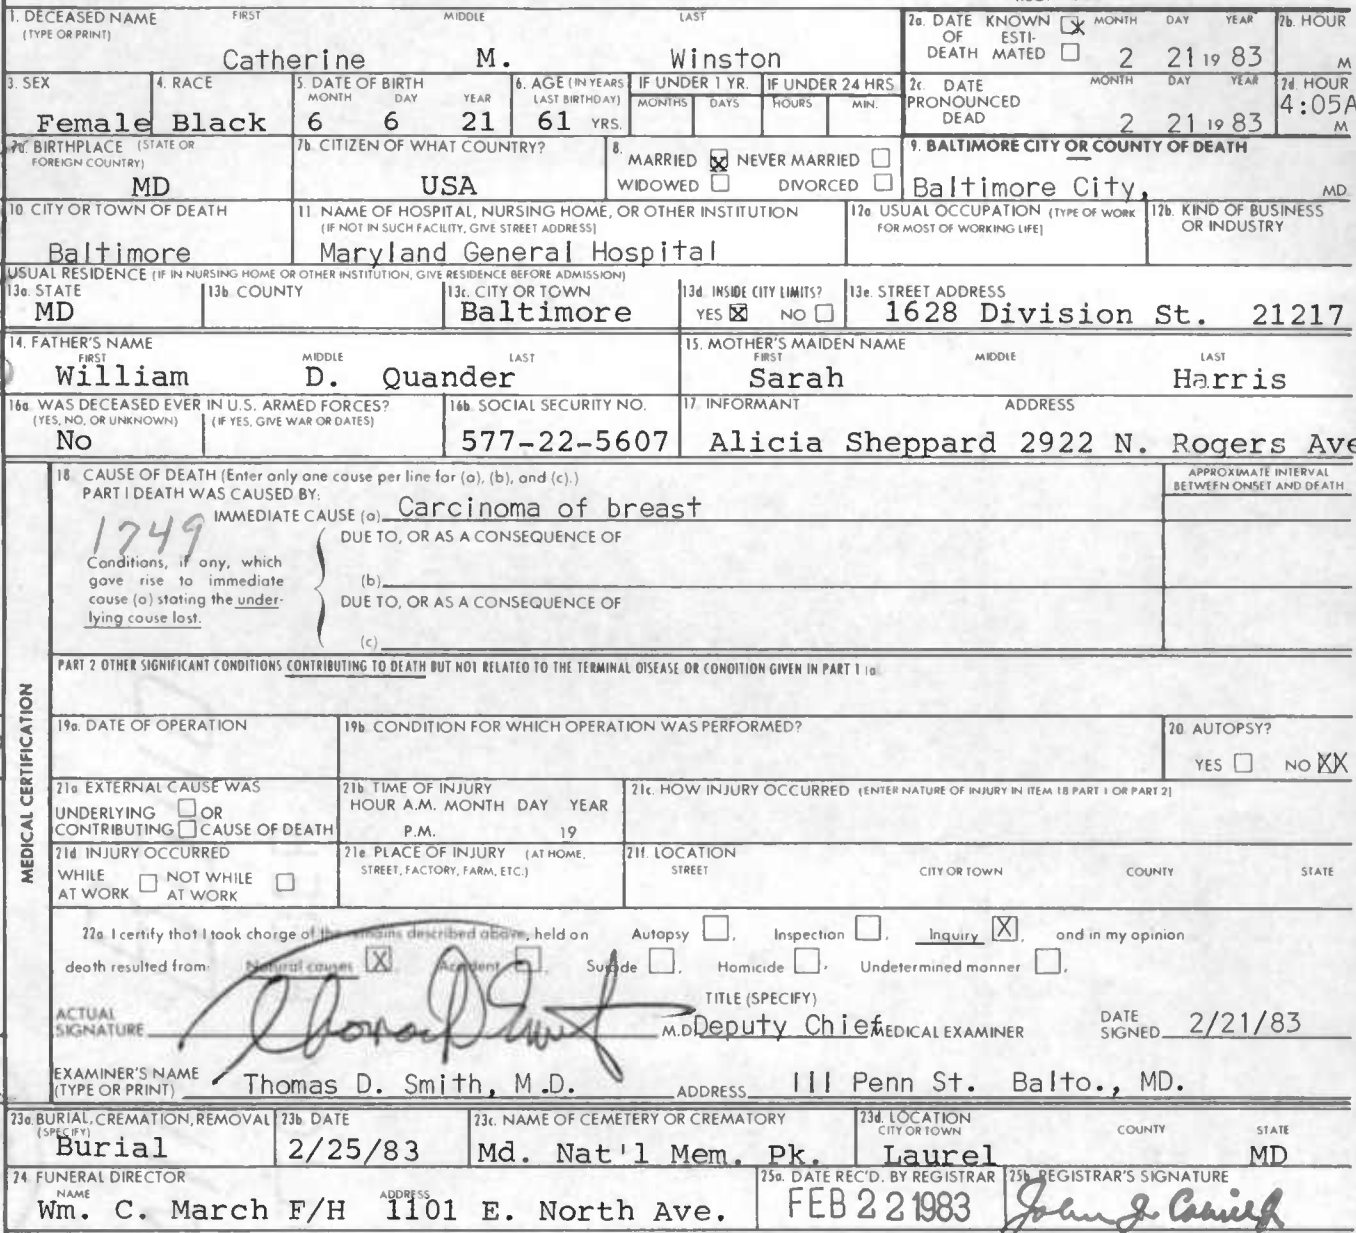 1. DECEASED NAME FIRST MIDDLE LAST
(TYPE OR PRINT)
Catherine M. Winston
2a. DATE KNOWN ☒ MONTH DAY YEAR
OF ESTI-
DEATH MATED ☐ 2 21 19 83
2b. HOUR
M
3. SEX
Female
4. RACE
Black
5. DATE OF BIRTH
MONTH DAY YEAR
6 6 21
6. AGE (IN YEARS
LAST BIRTHDAY)
61 YRS.
IF UNDER 1 YR.
MONTHS DAYS
IF UNDER 24 HRS
HOURS MIN.
2c. DATE MONTH DAY YEAR
PRONOUNCED
DEAD 2 21 19 83
2d. HOUR
4:05A
M
7a. BIRTHPLACE (STATE OR
FOREIGN COUNTRY)
MD
7b. CITIZEN OF WHAT COUNTRY?
USA
8.
MARRIED ☒ NEVER MARRIED ☐
WIDOWED ☐ DIVORCED ☐
9. BALTIMORE CITY OR COUNTY OF DEATH
Baltimore City, MD
10. CITY OR TOWN OF DEATH
Baltimore
11. NAME OF HOSPITAL, NURSING HOME, OR OTHER INSTITUTION
(IF NOT IN SUCH FACILITY, GIVE STREET ADDRESS)
Maryland General Hospital
12a. USUAL OCCUPATION (TYPE OF WORK
FOR MOST OF WORKING LIFE)
12b. KIND OF BUSINESS
OR INDUSTRY
USUAL RESIDENCE (IF IN NURSING HOME OR OTHER INSTITUTION, GIVE RESIDENCE BEFORE ADMISSION)
13a. STATE
MD
13b. COUNTY
13c. CITY OR TOWN
Baltimore
13d. INSIDE CITY LIMITS?
YES ☒ NO ☐
13e. STREET ADDRESS
1628 Division St. 21217
14. FATHER'S NAME
FIRST MIDDLE LAST
William D. Quander
15. MOTHER'S MAIDEN NAME
FIRST MIDDLE LAST
Sarah Harris
16a. WAS DECEASED EVER IN U.S. ARMED FORCES?
(YES, NO, OR UNKNOWN) (IF YES, GIVE WAR OR DATES)
No
16b. SOCIAL SECURITY NO.
577-22-5607
17. INFORMANT ADDRESS
Alicia Sheppard 2922 N. Rogers Ave
MEDICAL CERTIFICATION
18. CAUSE OF DEATH (Enter only one cause per line for (a), (b), and (c).)
PART I DEATH WAS CAUSED BY:
IMMEDIATE CAUSE (a) Carcinoma of breast
APPROXIMATE INTERVAL
BETWEEN ONSET AND DEATH
1749
DUE TO, OR AS A CONSEQUENCE OF
Conditions, if any, which
gave rise to immediate
cause (a) stating the under-
lying cause last.
(b)
DUE TO, OR AS A CONSEQUENCE OF
(c)
PART 2 OTHER SIGNIFICANT CONDITIONS CONTRIBUTING TO DEATH BUT NOT RELATED TO THE TERMINAL DISEASE OR CONDITION GIVEN IN PART 1 1a
19a. DATE OF OPERATION
19b. CONDITION FOR WHICH OPERATION WAS PERFORMED?
20. AUTOPSY?
YES ☐ NO XX
21a. EXTERNAL CAUSE WAS
UNDERLYING ☐ OR
CONTRIBUTING ☐ CAUSE OF DEATH
21b. TIME OF INJURY
HOUR A.M. MONTH DAY YEAR
P.M. 19
21c. HOW INJURY OCCURRED (ENTER NATURE OF INJURY IN ITEM 18 PART 1 OR PART 2)
21d. INJURY OCCURRED
WHILE AT WORK ☐ NOT WHILE AT WORK ☐
21e. PLACE OF INJURY (AT HOME,
STREET, FACTORY, FARM, ETC.)
21f. LOCATION
STREET CITY OR TOWN COUNTY STATE
22a. I certify that I took charge of the remains described above, held on Autopsy ☐, Inspection ☐, Inquiry ☒, and in my opinion
death resulted from: Natural causes ☒, Accident ☐, Suicide ☐, Homicide ☐, Undetermined manner ☐,
ACTUAL
SIGNATURE Thomas D Smith M.D.
TITLE (SPECIFY)
Deputy Chief MEDICAL EXAMINER
DATE
SIGNED 2/21/83
EXAMINER'S NAME
(TYPE OR PRINT) Thomas D. Smith, M.D. ADDRESS 111 Penn St. Balto., MD.
23a. BURIAL, CREMATION, REMOVAL
(SPECIFY)
Burial
23b. DATE
2/25/83
23c. NAME OF CEMETERY OR CREMATORY
Md. Nat'l Mem. Pk.
23d. LOCATION
CITY OR TOWN COUNTY STATE
Laurel MD
24. FUNERAL DIRECTOR
NAME ADDRESS
Wm. C. March F/H 1101 E. North Ave.
25a. DATE REC'D. BY REGISTRAR
FEB 22 1983
25b. REGISTRAR'S SIGNATURE
John J.